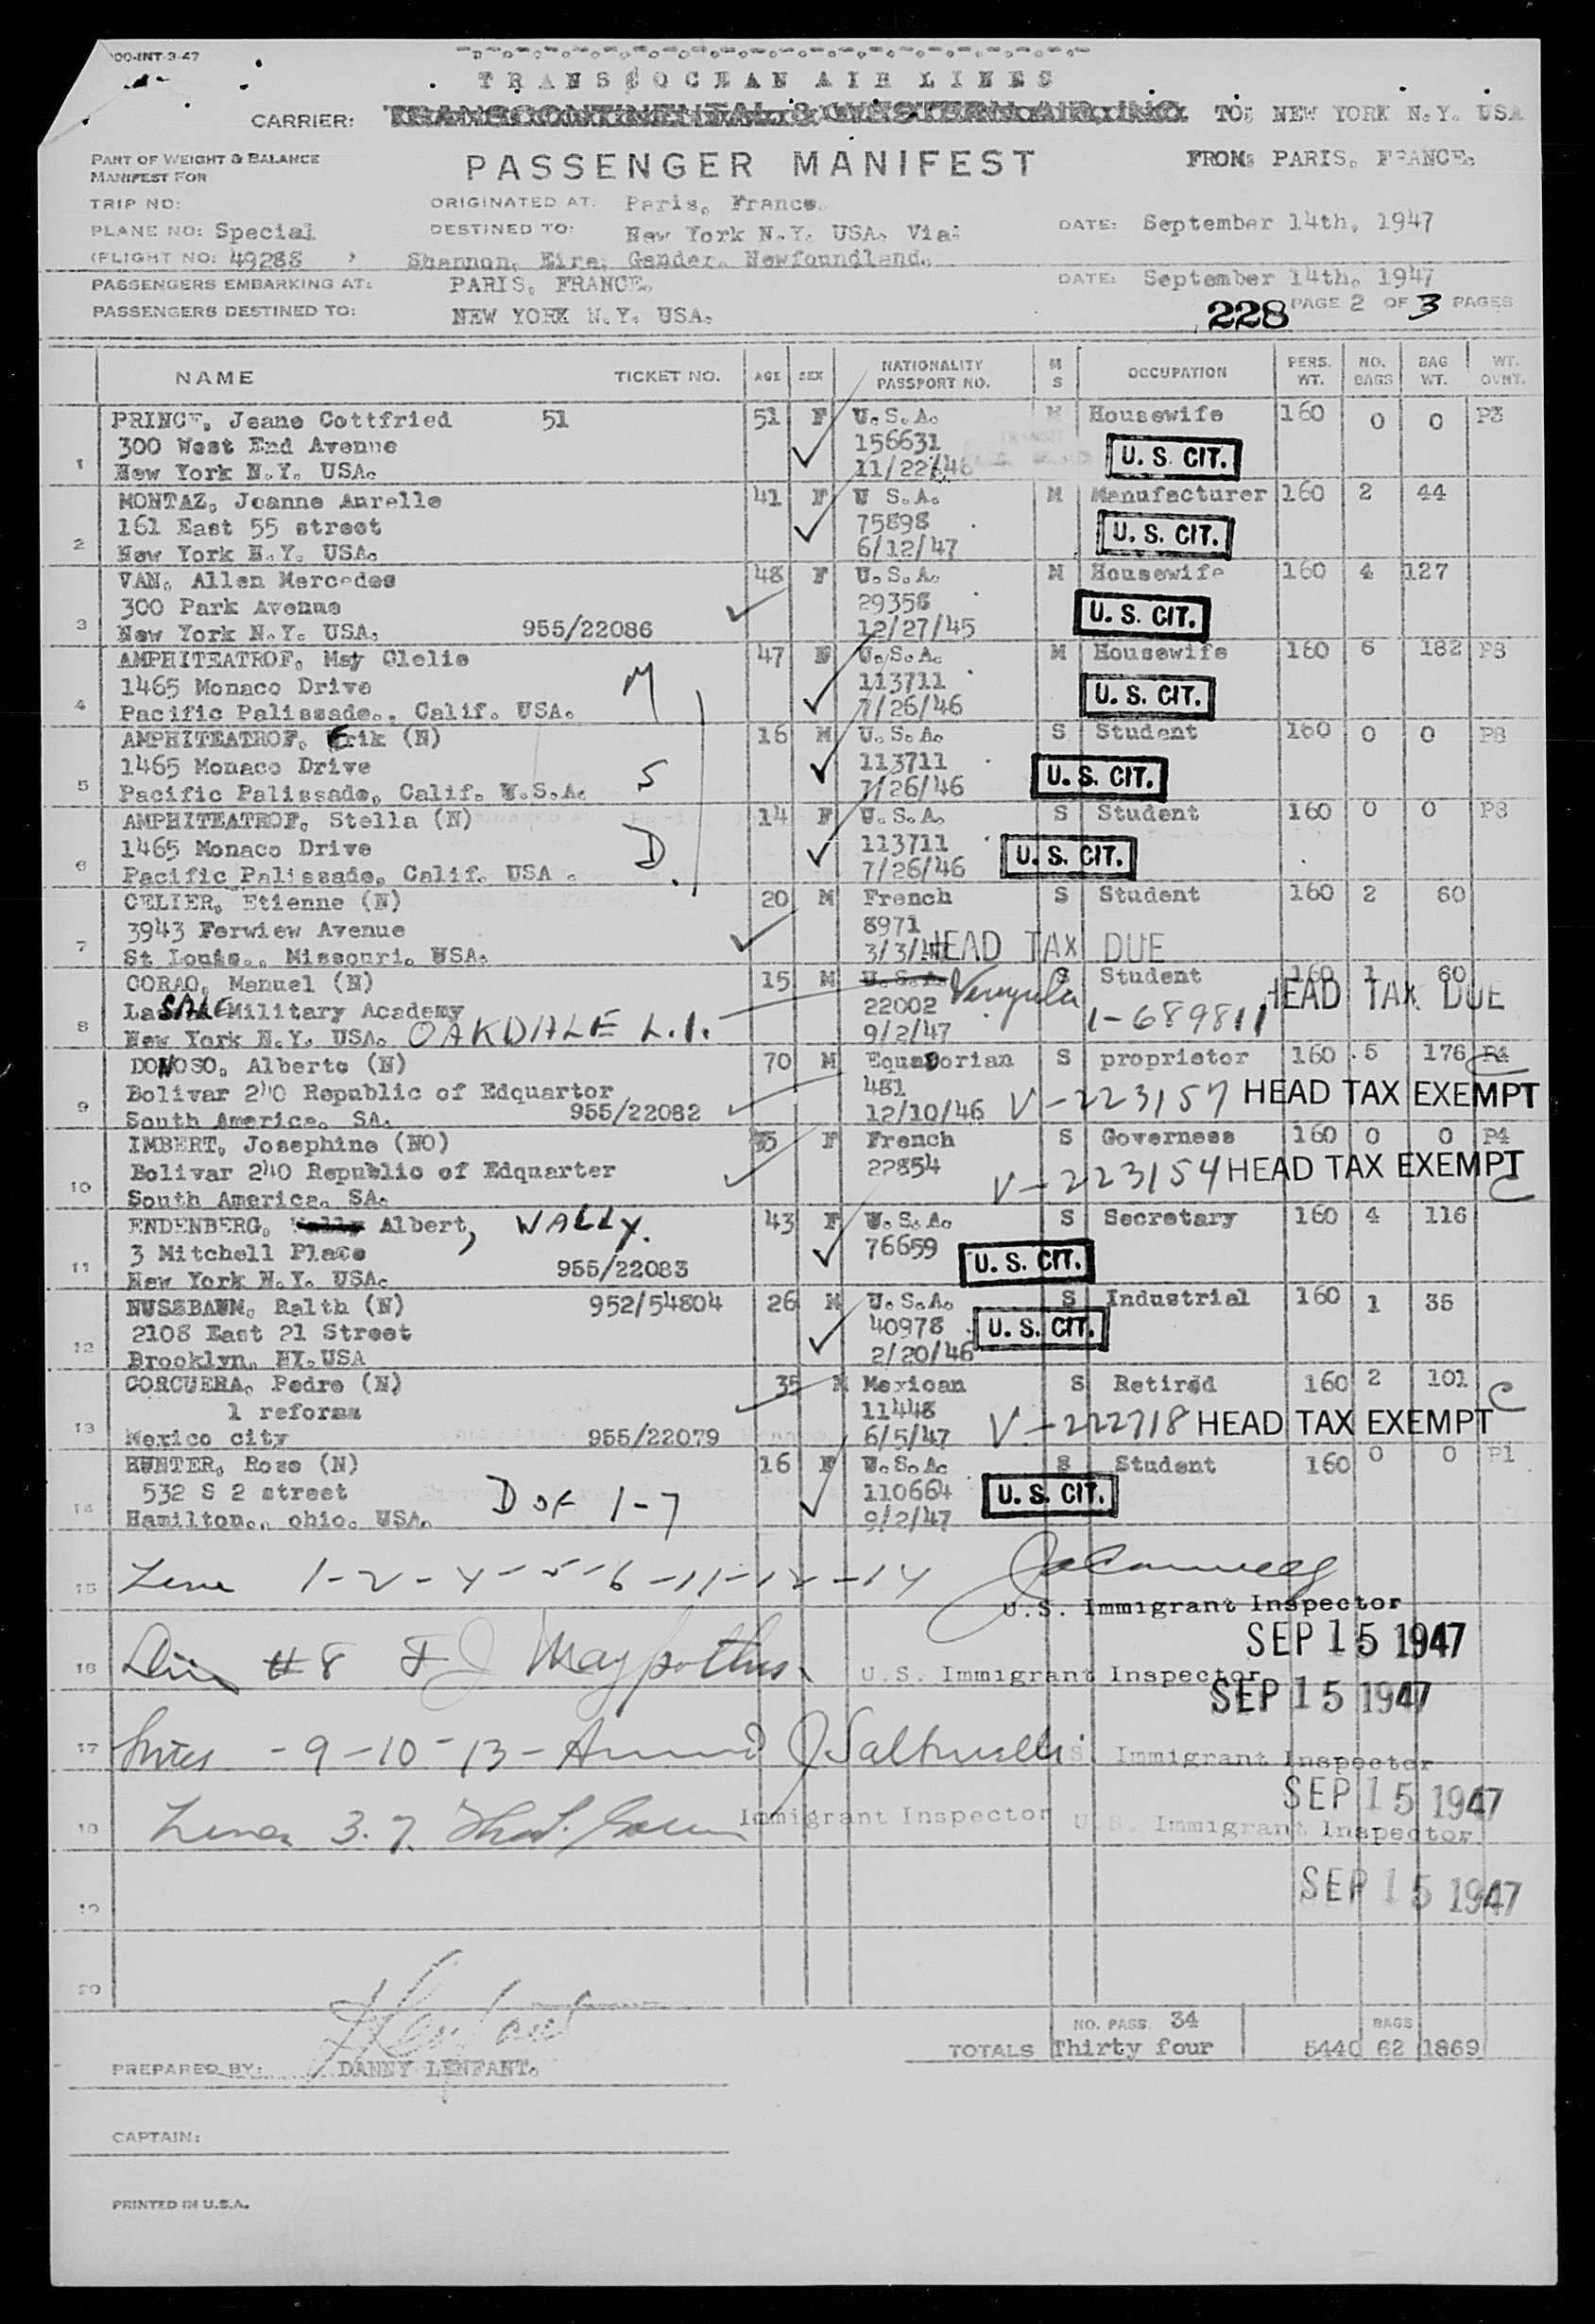 00-INT-3-47
TRANS OCEAN AIR LINES
CARRIER: TRANSCONTINENTAL & WESTERN AIR, INC. TO: NEW YORK N.Y. USA
PART OF WEIGHT & BALANCE
MANIFEST FOR
PASSENGER MANIFEST
FROM: PARIS, FRANCE.
TRIP NO:
ORIGINATED AT: Paris, France.
PLANE NO: Special
DESTINED TO: New York N.Y. USA. Via:
DATE: September 14th, 1947
(FLIGHT NO: 49288 ) Shannon, Eire; Gander, Newfoundland.
PASSENGERS EMBARKING AT: PARIS, FRANCE.
DATE: September 14th, 1947
PASSENGERS DESTINED TO: NEW YORK N.Y. USA.
228 PAGE 2 OF 3 PAGES
NAME TICKET NO. AGE SEX NATIONALITY PASSPORT NO. M S OCCUPATION PERS. WT. NO. BAGS BAG WT. WT. OVNT.
PRINCE, Jeane Gottfried 51 51 F U.S.A. M Housewife 160 0 0 P3
300 West End Avenue 156631
1 New York N.Y. USA. 11/22/46 U. S. CIT.
MONTAZ, Jeanne Aurelle 41 F U S.A. M Manufacturer 160 2 44
161 East 55 street 75898
2 New York N.Y. USA. 6/12/47 U. S. CIT.
VAN, Allen Mercedes 48 F U.S.A. M Housewife 160 4 127
300 Park Avenue 29358
3 New York N.Y. USA. 955/22086 12/27/45 U. S. CIT.
AMPHITEATROF, May Clelie 47 F U.S.A. M Housewife 160 6 182 P3
1465 Monaco Drive M 113711
4 Pacific Palissade., Calif. USA. 7/26/46 U. S. CIT.
AMPHITEATROF, Erik (N) 16 M U.S.A. S Student 160 0 0 P3
1465 Monaco Drive S 113711
5 Pacific Palissade, Calif. U.S.A. 7/26/46 U. S. CIT.
AMPHITEATROF, Stella (N) 14 F U.S.A. S Student 160 0 0 P3
1465 Monaco Drive D 113711
6 Pacific Palissade, Calif. USA . 7/26/46 U. S. CIT.
CELIER, Etienne (N) 20 M French S Student 160 2 60
3943 Ferwiew Avenue 8971
7 St Louis., Missouri. USA. 3/3/47 HEAD TAX DUE
CORAO, Manuel (N) 15 M U.S.A. Venezuela S Student 160 1 60
La SALLE Military Academy 22002 1-689811 HEAD TAX DUE
8 New York N.Y. USA. OAKDALE L.I. 9/2/47
DONOSO, Alberto (N) 70 M Equadorian S proprietor 160 5 176 P4
Bolivar 240 Republic of Edquartor 481
9 South America. SA. 955/22082 12/10/46 V-223157 HEAD TAX EXEMPT
IMBERT, Josephine (NO) 35 F French S Governess 160 0 0 P4
Bolivar 240 Republic of Edquarter 22854
10 South America. SA. V-223154 HEAD TAX EXEMPT C
ENDENBERG, Wally Albert, WALLY. 43 F U.S.A. S Secretary 160 4 116
3 Mitchell Place 76659
11 New York N.Y. USA. 955/22083 U. S. CIT.
NUSSBAUM, Ralth (N) 952/54804 26 M U.S.A. S Industrial 160 1 35
2108 East 21 Street 40978
12 Brooklyn. NY.USA 2/20/46 U. S. CIT.
CORCUERA, Pedro (N) 35 M Mexican S Retired 160 2 101 C
1 reforma 11448
13 Mexico city 955/22079 6/5/47 V-222718 HEAD TAX EXEMPT
HUNTER, Rose (N) 16 F U.S.A. S Student 160 0 0 P1
532 S 2 street 110664
14 Hamilton., ohio. USA. D OF 1-7 9/2/47 U. S. CIT.
15 Line 1-2-4-5-6-11-12-14
U.S. Immigrant Inspector
SEP 15 1947
16 # 8 U.S. Immigrant Inspector
SEP 15 1947
17 Lines -9-10-13- S. Immigrant Inspector
SEP 15 1947
18 Lines 3.7. Immigrant Inspector U.S. Immigrant Inspector
SEP 15 1947
19
20
NO. PASS. 34 BAGS
TOTALS Thirty four 5440 62 1869
PREPARED BY: DANNY LENFANT.
CAPTAIN:
PRINTED IN U.S.A.